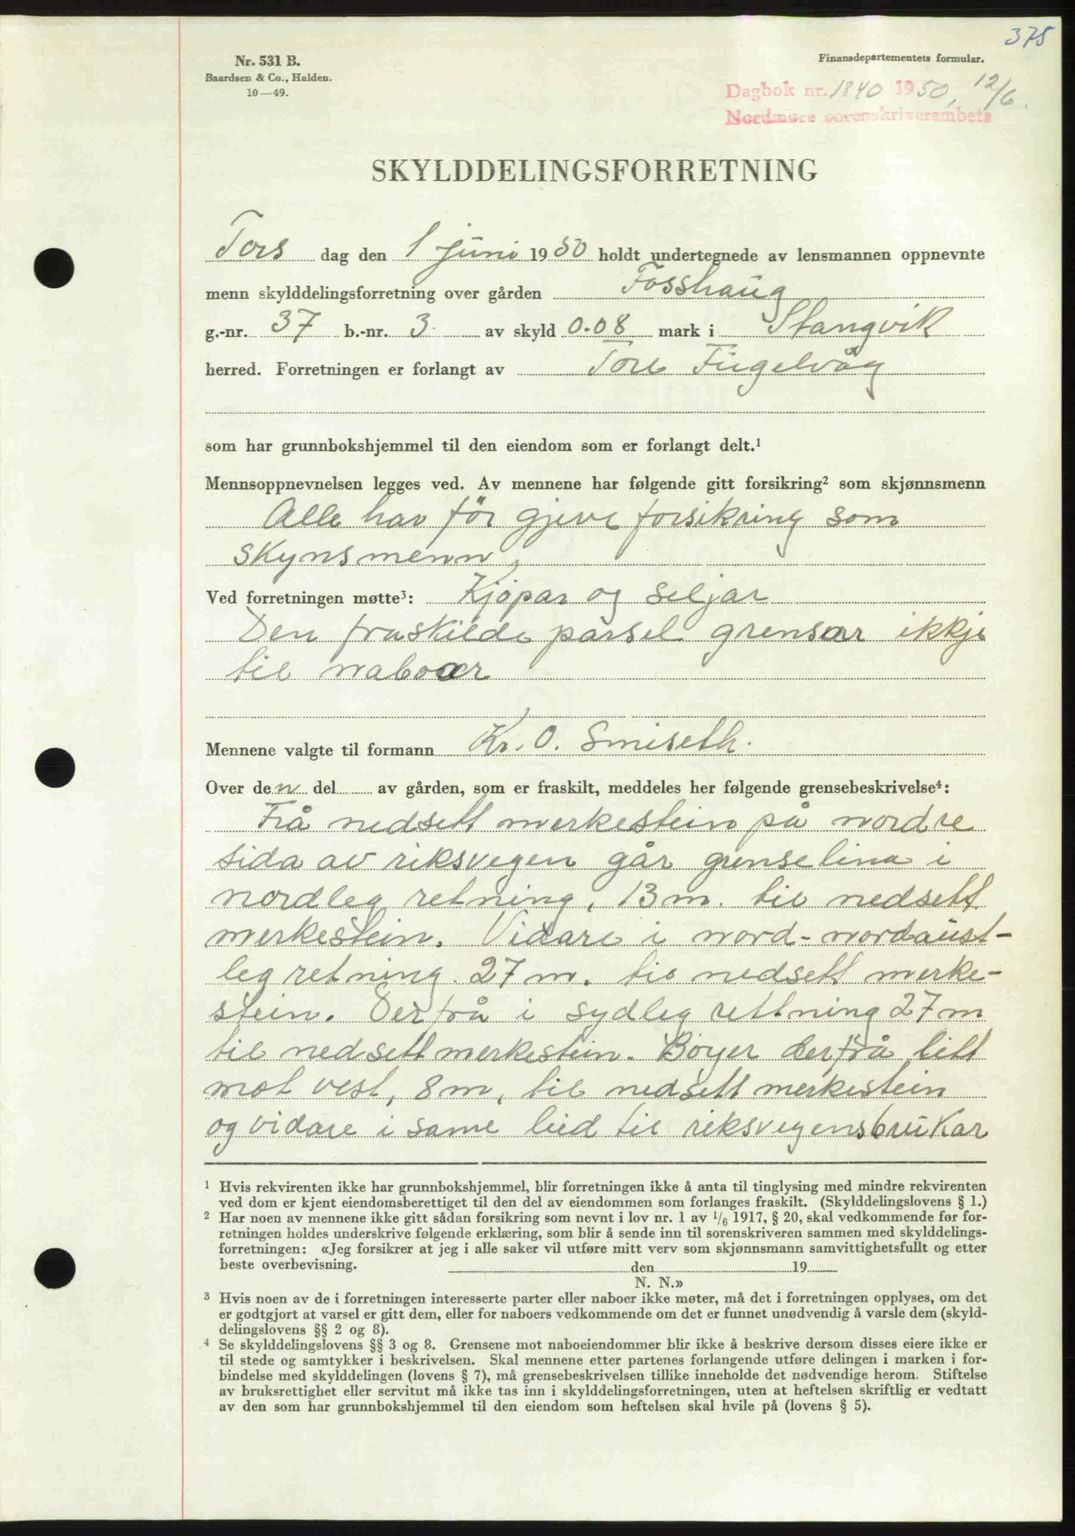 375
Nr. 531 B.
Baardsen & Co., Halden.
10—49.
Finansdepartementets formular.
Dagbok nr. 1840 1950, 12/6.
Nordmøre sorenskriverembete
SKYLDDELINGSFORRETNING
Tors dag den 1 juni 1950 holdt undertegnede av lensmannen oppnevnte
menn skylddelingsforretning over gården Fosshaug
g.-nr. 37 b.-nr. 3. av skyld 0.08 mark i Stangvik
herred. Forretningen er forlangt av Tore Fugelvåg
som har grunnbokshjemmel til den eiendom som er forlangt delt.¹
Mennsoppnevnelsen legges ved. Av mennene har følgende gitt forsikring² som skjønnsmenn
Alle har før gjeve forsikring som
skynsmenn,
Ved forretningen møtte³: Kjøpar og seljar
Den fraskilde parsel grensar ikkje
til naboar
Mennene valgte til formann Kr. O. Smiseth.
Over den del av gården, som er fraskilt, meddeles her følgende grensebeskrivelse⁴:
Frå nedsett merkestein på nordre
sida av riksvegen går grenselina i
nordleg retning, 13 m. til nedsett
merkestein. Vidare i nord-nordaust-
leg retning 27 m. til nedsett merke-
stein. Derfrå i sydleg rettning 27 m
til nedsett merkestein. Bøyer derfrå litt
mot vest, 8 m, til nedsett merkestein
og vidare i same leid til riksvegensbrukar
¹ Hvis rekvirenten ikke har grunnbokshjemmel, blir forretningen ikke å anta til tinglysing med mindre rekvirenten
ved dom er kjent eiendomsberettiget til den del av eiendommen som forlanges fraskilt. (Skylddelingslovens § 1.)
² Har noen av mennene ikke gitt sådan forsikring som nevnt i lov nr. 1 av 1/6 1917, § 20, skal vedkommende før for-
retningen holdes underskrive følgende erklæring, som blir å sende inn til sorenskriveren sammen med skylddelings-
forretningen: «Jeg forsikrer at jeg i alle saker vil utføre mitt verv som skjønnsmann samvittighetsfullt og etter
beste overbevisning. den 19
N. N.»
³ Hvis noen av de i forretningen interesserte parter eller naboer ikke møter, må det i forretningen opplyses, om det
er godtgjort at varsel er gitt dem, eller for naboers vedkommende om det er funnet unødvendig å varsle dem (skyld-
delingslovens §§ 2 og 8).
⁴ Se skylddelingslovens §§ 3 og 8. Grensene mot naboeiendommer blir ikke å beskrive dersom disses eiere ikke er
til stede og samtykker i beskrivelsen. Skal mennene etter partenes forlangende utføre delingen i marken i for-
bindelse med skylddelingen (lovens § 7), må grensebeskrivelsen tillike inneholde det nødvendige herom. Stiftelse
av bruksrettighet eller servitut må ikke tas inn i skylddelingsforretningen, uten at heftelsen skriftlig er vedtatt
av den som har grunnbokshjemmel til den eiendom som heftelsen skal hvile på (lovens § 5).